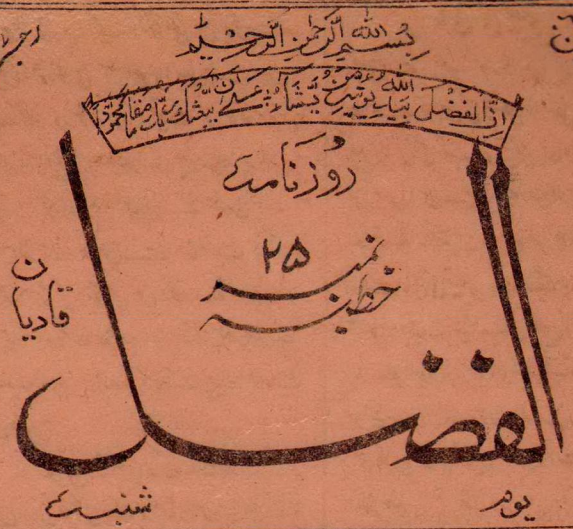 بسم اللہ الرحمن الرحیم
ان الفضل بید اللہ یؤتیہ من یشاء عسی ان یبعثک ربک مقاما محمودا
روزنامہ
نمبر ۲۵
خطبہ
قادیان
الفضل
یوم شنبہ